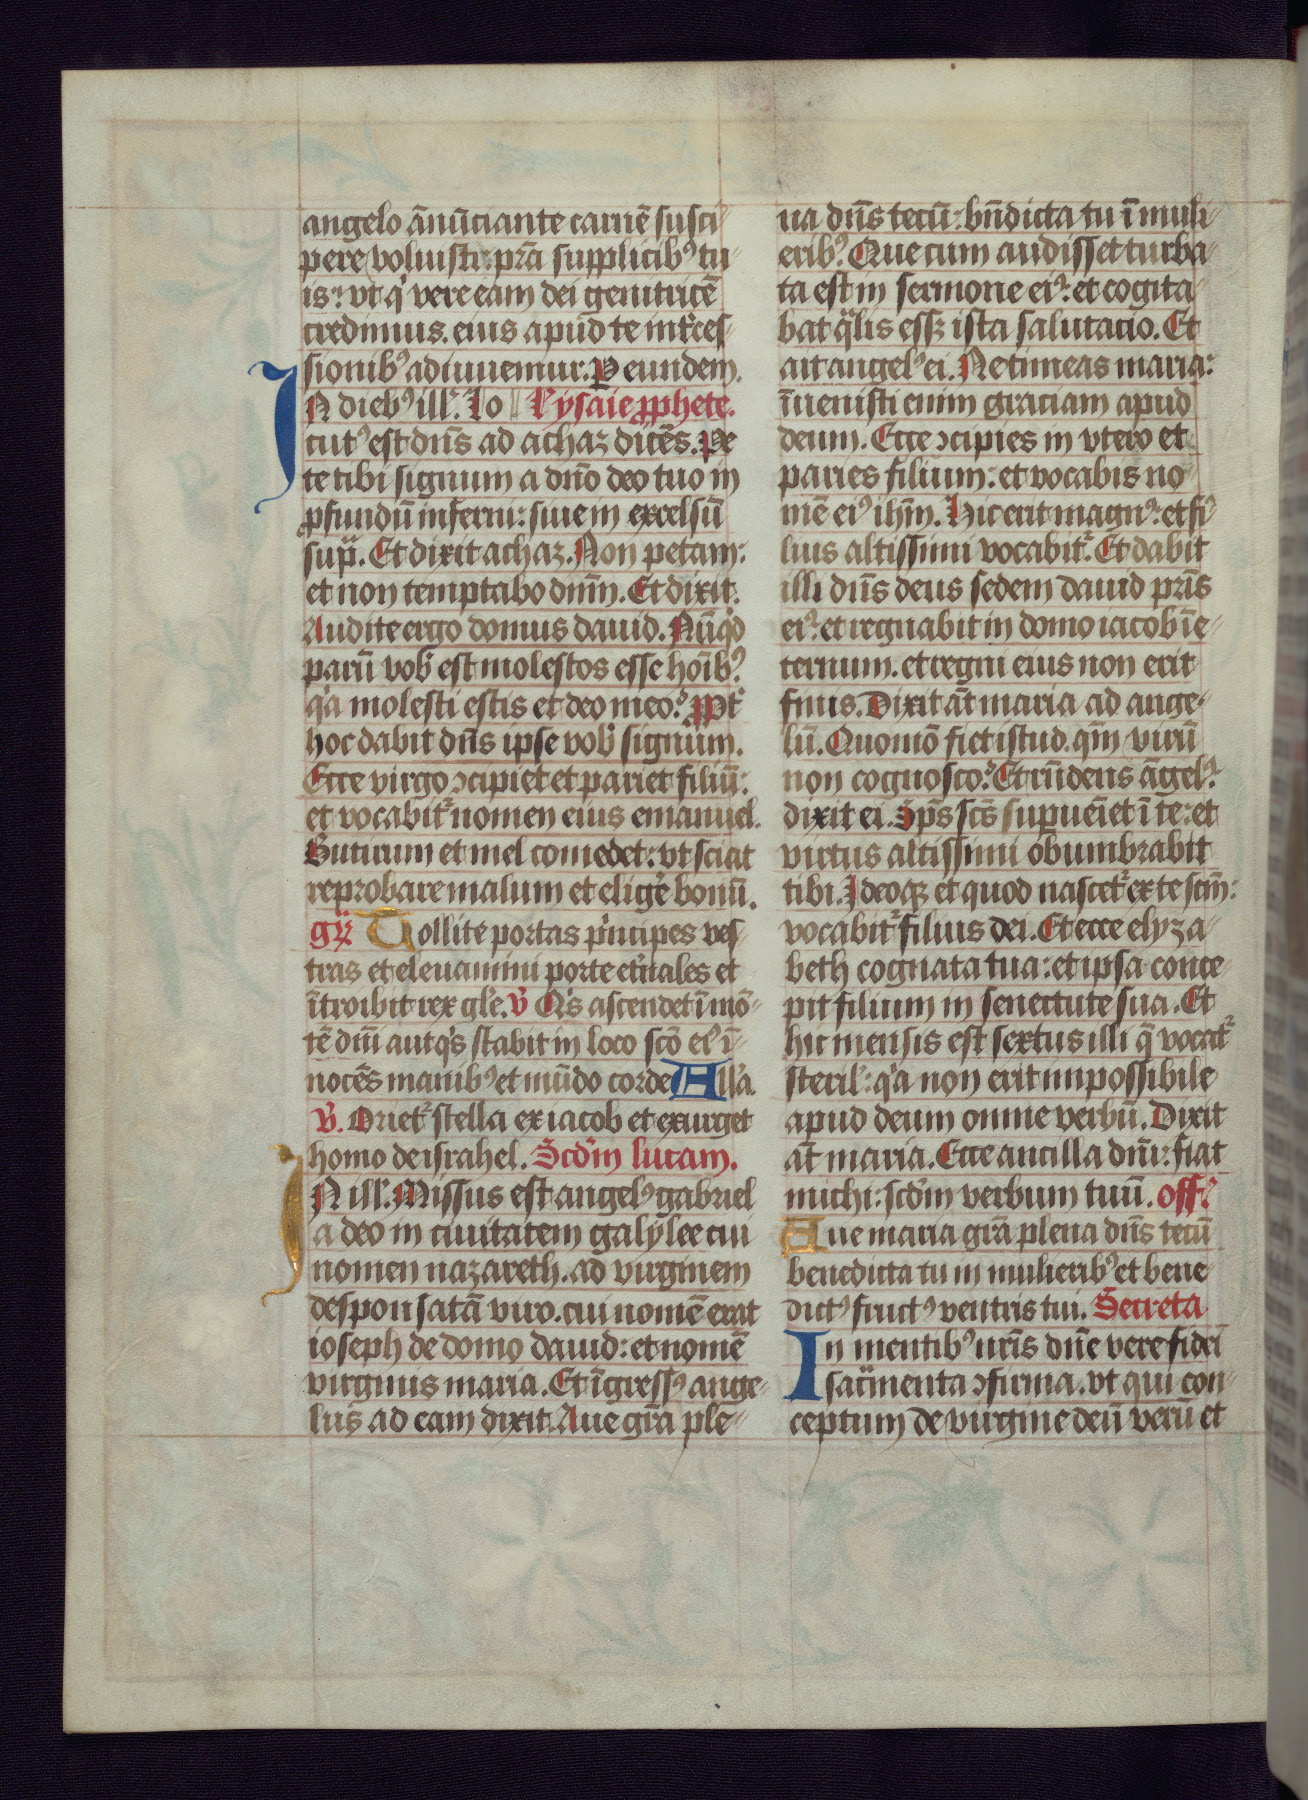 angelo ānūciante carnē susci
pere voluisti: pr̄a supplicib⁹ tu
is: vt q̇ vere eam dei genitricē
credimus. eius apud te int̄ces
sionib⁹ adiuuemur. P eundem.
IN dieb⁹ ill̄. Lo Lysaie ꝓphete.
cut⁹ est dn̄s ad achaz dicēs. Pe
te tibi signum a dn̄o deo tuo in
ꝓfundū inferni: siue in excelsū
supͣ. Et dixit achaz. Non petam:
et non temptabo dnm̄. Et dixit.
Audite ergo domus dauid. Nūq̇d
parū vob̄ est molestos esse hoīb⁹.
q̇a molesti estis et deo meo. Ꝓpt̄
hoc dabit dn̄s ipse vob̄ signum.
Ecce virgo ↄcipiet et pariet filiū:
et vocabit᷑ nomen eius emanuel.
Butirum et mel comedet: vt sciat
reprobare malum et elige᷑ bonū.
gr̄ Tollite portas pͥncipes ves
tras et eleuamini porte et᷑nales et
ītroibit rex gl̄e. V̄ Qͥs ascendet ī mō
tē dn̄i aut qͥs stabit in loco scō ei⁹ ī
nocēs manib⁹ et mūdo corde All̄a.
V̄. Oriet᷑ stella ex iacob et exurget
homo de israhel. Scd̄m lucam.
IN ill̄. Missus est angel⁹ gabriel
a deo in ciuitatem galylee cui
nomen nazareth. ad virginem
desponsatā viro. cui nomē erat
ioseph de domo dauid: et nomē
virginis maria. Et īgress⁹ ange
lus ad eam dixit. Aue gr̄a ple
na dn̄s tecū: bn̄dicta tu ī muli
erib⁹. Que cum audisset turba
ta est in sermone ei⁹: et cogita
bat qͣlis essꝫ ista salutacio. Et
ait angel⁹ ei. Ne timeas maria:
īuenisti enim graciam apud
deum. Ecce ↄcipies in vtero et
paries filium: et vocabis no
mē ei⁹ ihm̄. Hic erit magn⁹: et fi
lius altissimi vocabit᷑. Et dabit
illi dn̄s deus sedem dauid pr̄is
ei⁹: et regnabit in domo iacob ī e
ternum. et regni eius non erit
finis. Dixit āt maria ad ange
lū. Quomō fiet istud. qm̄ virū
non cognosco. Et rn̄dens āgel⁹
dixit ei. Sp̄s scs̄ supueīet ī te: et
virtus altissimi obumbrabit
tibi. Ideoqꝫ et quod nascet᷑ ex te scm̄:
vocabit᷑ filius dei. Et ecce elyza
beth cognata tua: et ipsa conce
pit filium in senectute sua. Et
hic mensis est sextus illi q̄ vocat᷑
steril̄: q̇a non erit impossibile
apud deum omne verbū. Dixit
āt maria. Ecce ancilla dn̄i: fiat
michi: scd̄m verbum tuū. off̄.
Aue maria gr̄a plena dn̄s tecū
benedicta tu in mulierib⁹ et bene
dict⁹ fruct⁹ ventris tui. Secreta
In mentib⁹ nr̄is dn̄e vere fidei
sacͣmenta ↄfirma. vt qui con
ceptum de virgine deū verū et